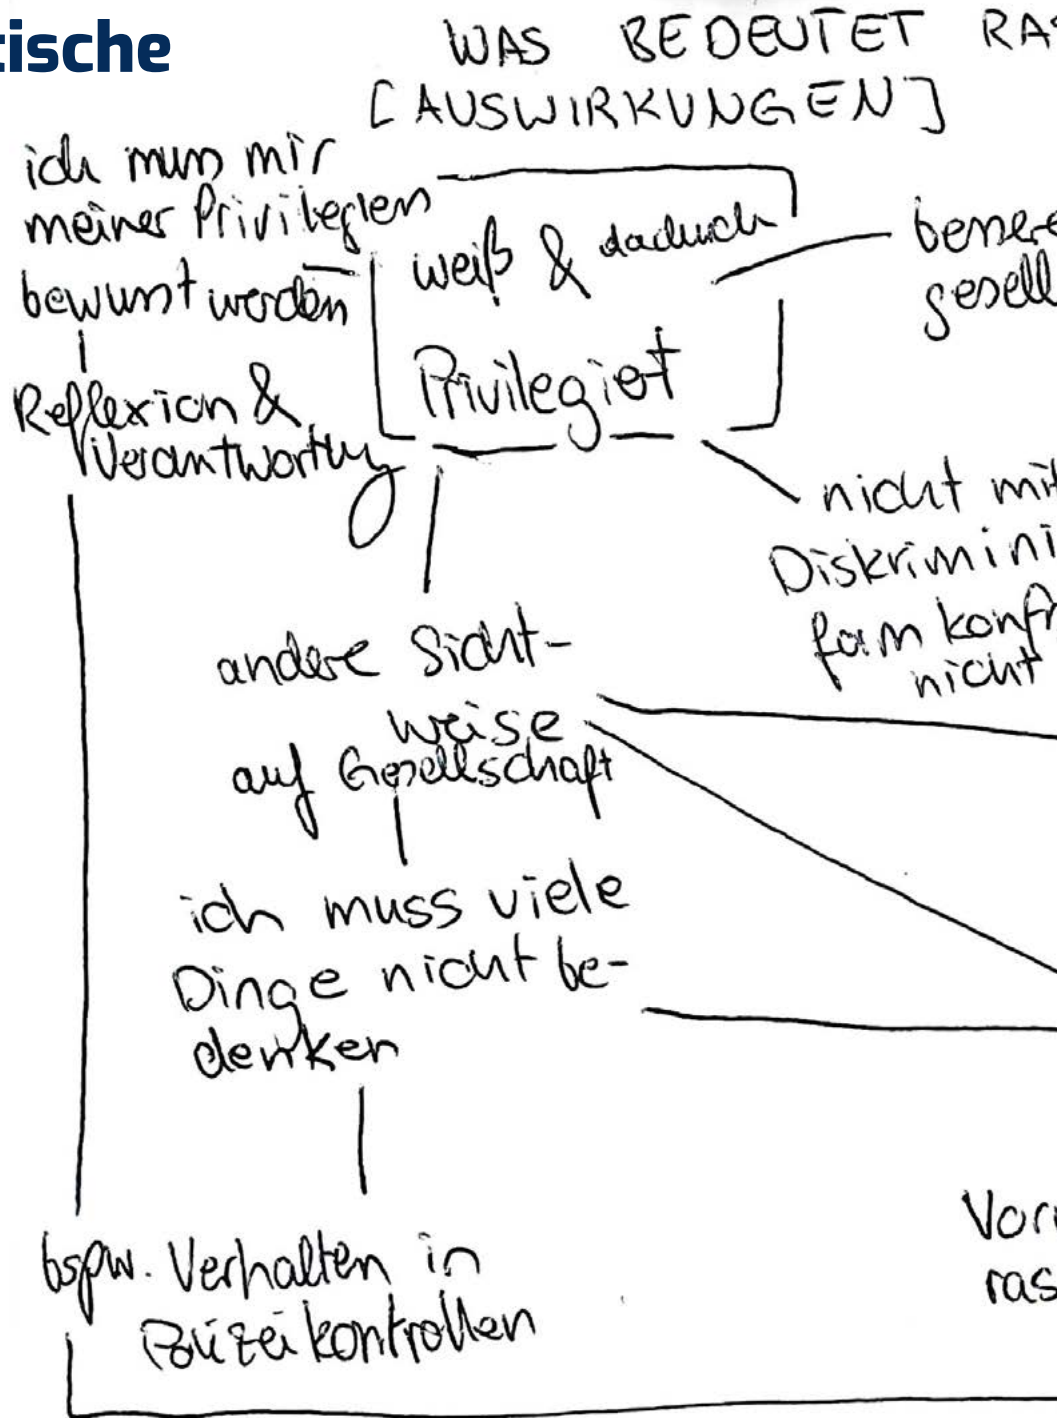 tische
WAS BEDEUTET RAS
[AUSWIRKUNGEN]
ich muss mir
meiner Privilegien
bewusst werden
Reflexion &
Verantwortung
weiß & dadurch
Privilegiert
bessere
gesell
nicht mit
Diskrimini
form konfr
nicht
andere Sicht-
weise
auf Gesellschaft
ich muss viele
Dinge nicht be-
denken
bspw. Verhalten in
Polizeikontrollen
Vor
ras